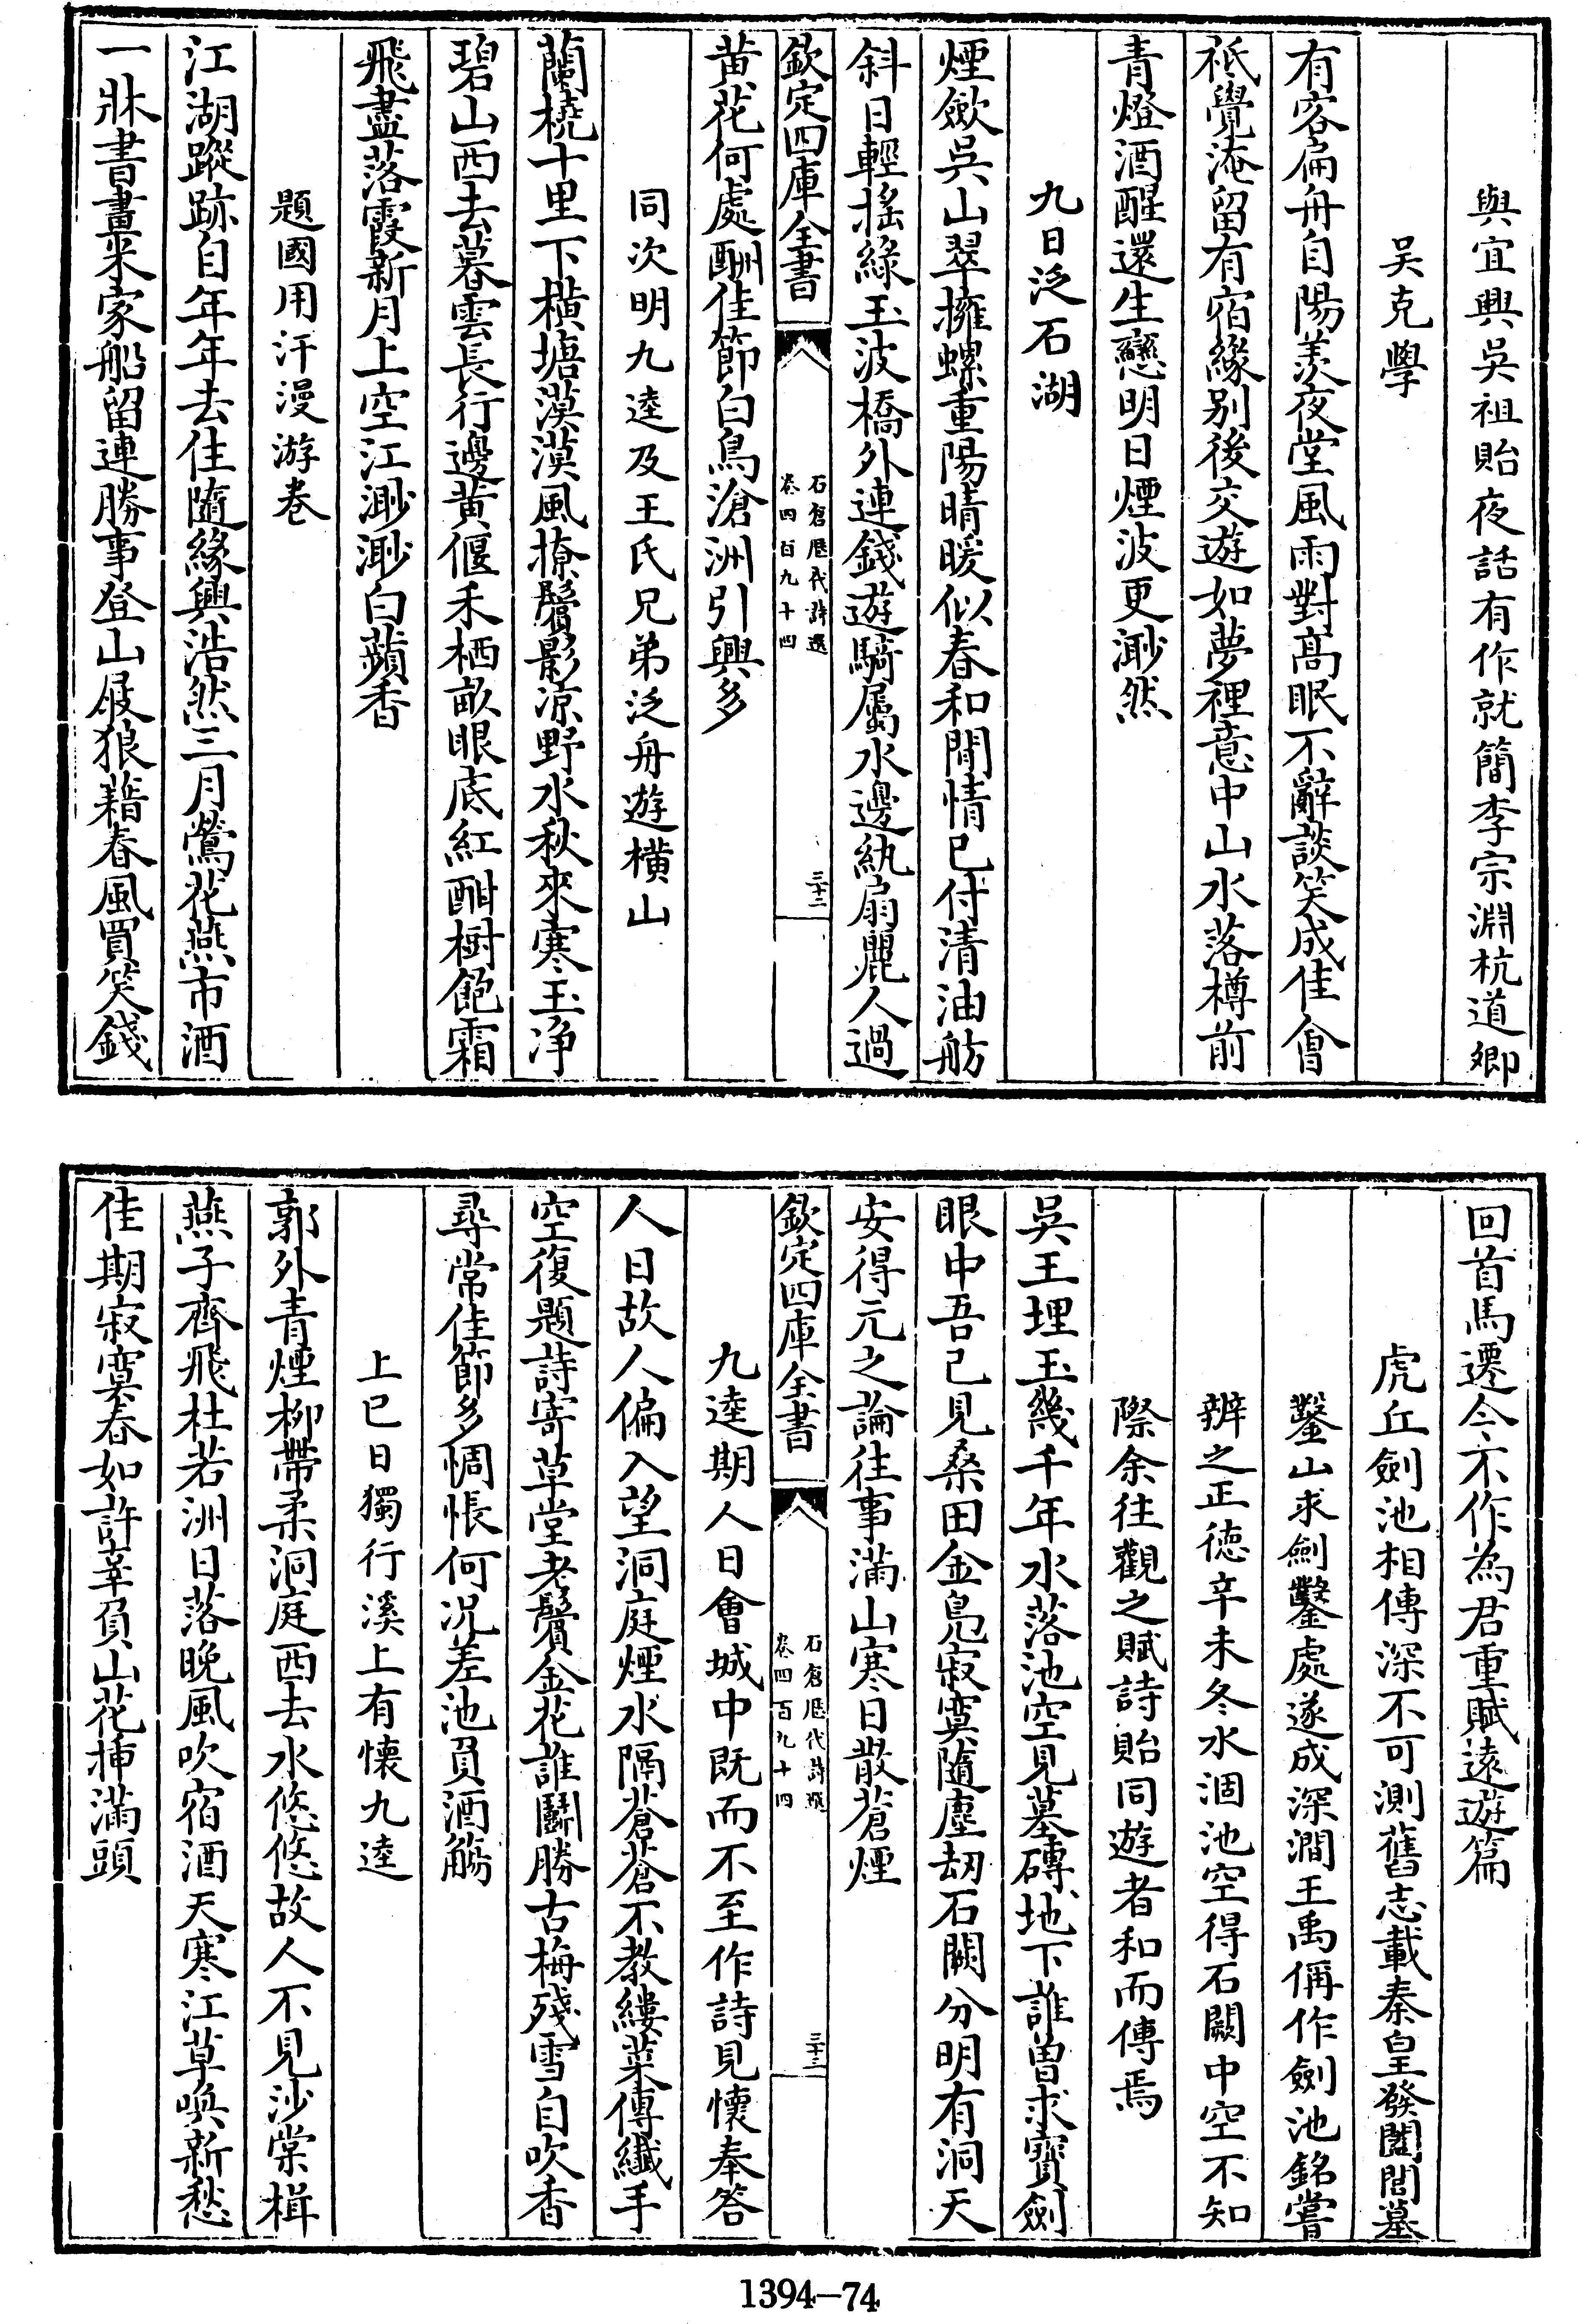 與宜興吳祖貽夜話有作就簡李宗淵杭道卿
吴克學
有客扁舟自陽羡夜堂風雨對髙眠不辭談笑成佳會
祗覺淹留有宿緣别後交遊如夢裡意中山水落樽前
青燈酒醒還生戀明日煙波更渺然
九日泛石湖
煙歛吳山翠擁螺重陽晴暖似春和閒情已付清油舫
斜日輕揺緑玉波橋外連錢遊騎屬水邊紈扇麗人過
欽定四庫全書
石倉歴代詩選
卷四百九十四
三十二
黄花何處酬佳節白鳥滄洲引興多
同次明九逵及王氏兄弟泛舟遊橫山
蘭橈十里下橫塘漠漠風撩鬢影凉野水秋來寒玉浄
碧山西去暮雲長行邊黄偃禾栖畝眼底紅酣樹飽霜
飛盡落霞新月上空江渺渺白蘋香
題國用汗漫游卷
江湖蹤跡自年年去住隨緣興浩然三月鶯花燕市酒
一牀書畫米家船留連勝事登山屐狼藉春風買笑錢
回首馬遷今不作為君重賦遠遊篇
虎丘劍池相傳深不可測舊志載秦皇發闔閭墓
鑿山求劍鑿處遂成深澗王禹偁作劍池銘嘗
辨之正徳辛未冬水涸池空得石闕中空不知
際余往觀之賦詩貽同遊者和而傳焉
吳王埋玉幾千年水落池空見墓磚地下誰曽求寶劍
眼中吾已見桑田金鳬寂寞隨塵刼石闕分明有洞天
安得元之論往事滿山寒日散蒼煙
欽定四庫全書
石倉歴代詩選
卷四百九十四
三十三
九逵期人日會城中既而不至作詩見懷奉答
人日故人偏入望洞庭煙水隔蒼蒼不教縷菜傳纖手
空復題詩寄草堂老鬢金花誰鬭勝古梅殘雪自吹香
尋常佳節多惆悵何况差池負酒觴
上巳日獨行溪上有懐九逵
郭外青煙柳帶柔洞庭西去水悠悠故人不見沙棠楫
燕子齊飛杜若洲日落晚風吹宿酒天寒江草喚新愁
佳期寂寞春如許辜負山花揷滿頭
1394—74